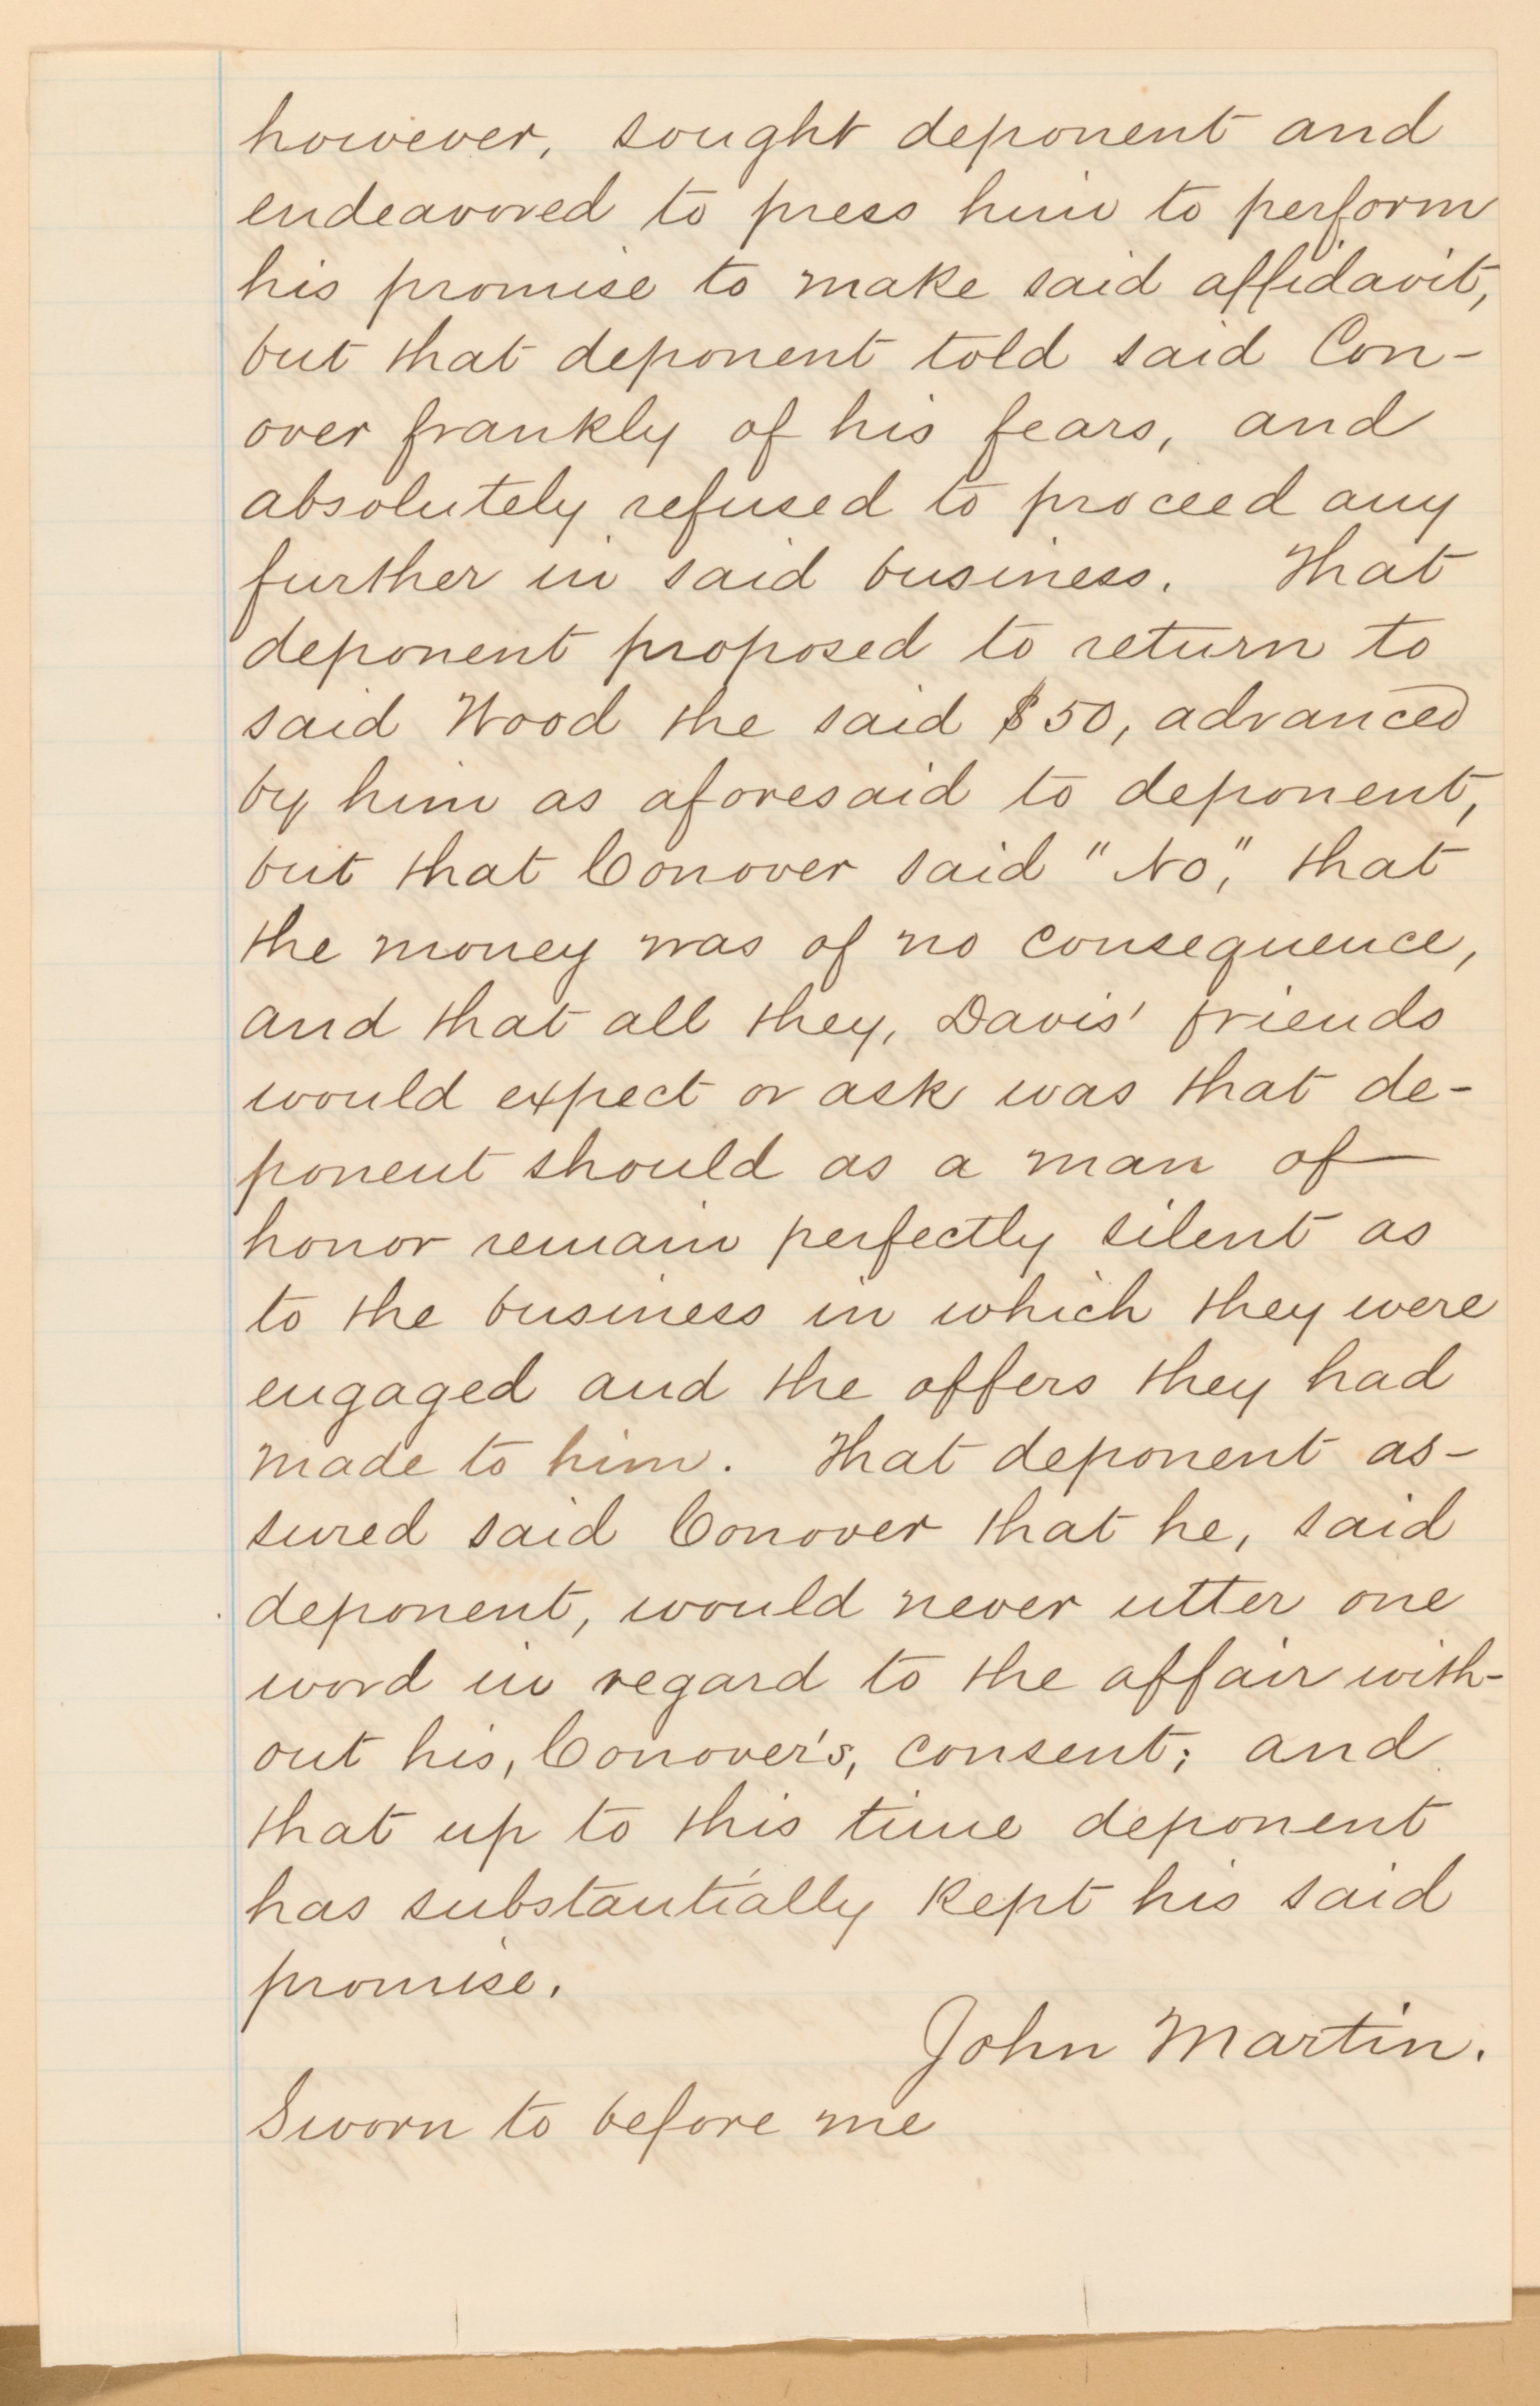 however, sought deponent and
endeavored to press him to perform
his promise to make said affidavit,
but that deponent told said Con-
over frankly of his fears, and
absolutely refused to proceed any
further in said business. That
deponent proposed to return to
said Wood the said $50, advanced
by him as aforesaid to deponent,
but that Conover said "No," that
the money was of no consequence,
and that all they, Davis' friends
would expect or ask was that de-
ponent should as a man of
honor remain perfectly silent as
to the business in which they were
engaged and the offers they had
made to him. That deponent as-
sured said Conover that he, said
deponent, would never utter one
word in regard to the affair with-
out his, Conover's, consent; and
that up to this time deponent
has substantially kept his said
promise.
John Martin.
Sworn to before me